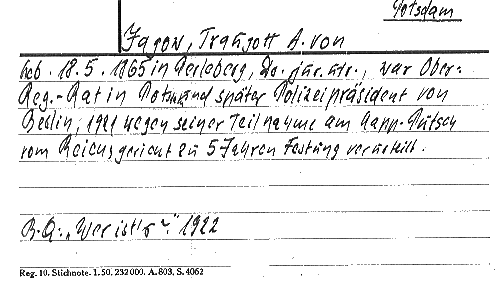 Potsdam
Jagow, Traugott A. von
geb. 18.5.1865 in Perleberg, Dr. jur. utr., war Ober-
Reg.-Rat in Potsd. und später Polizeipräsident von
Berlin, 1921 wegen seiner Teilnahme am Kapp-Putsch
vom Reichsgericht zu 5 Jahren Festung verurteilt.
B.Q: „Wer ist's?" 1922
Reg. 10. Stichnote. 1.50, 232000. A. 803, S. 4062